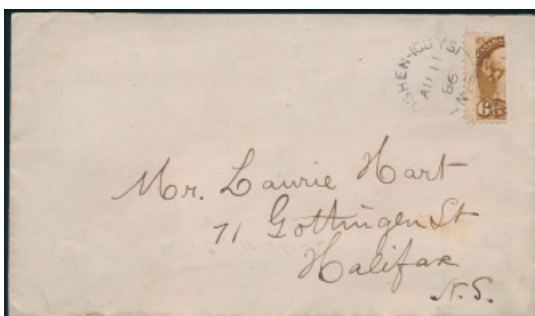 OSHEN-(GUYSB
AU 11
86
N.S.
6
Mr. Laurie Hart
71 Gottingen St
Halifax
N.S.